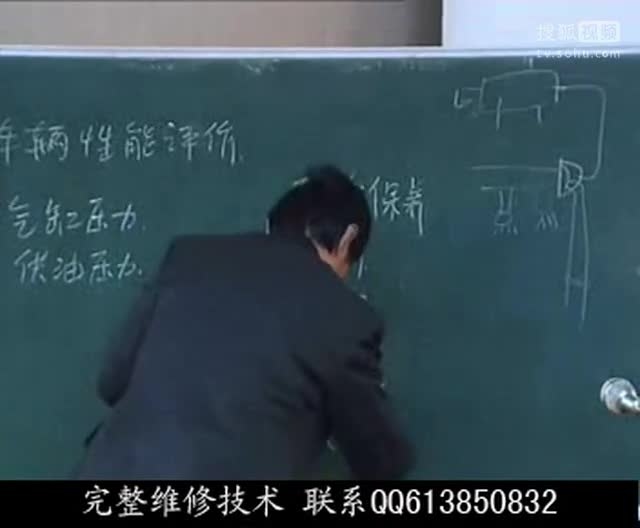 搜狐视频
tv.sohu.com
车辆性能评价
保养
气缸压力
供油压力
点火
完整维修技术 联系QQ613850832